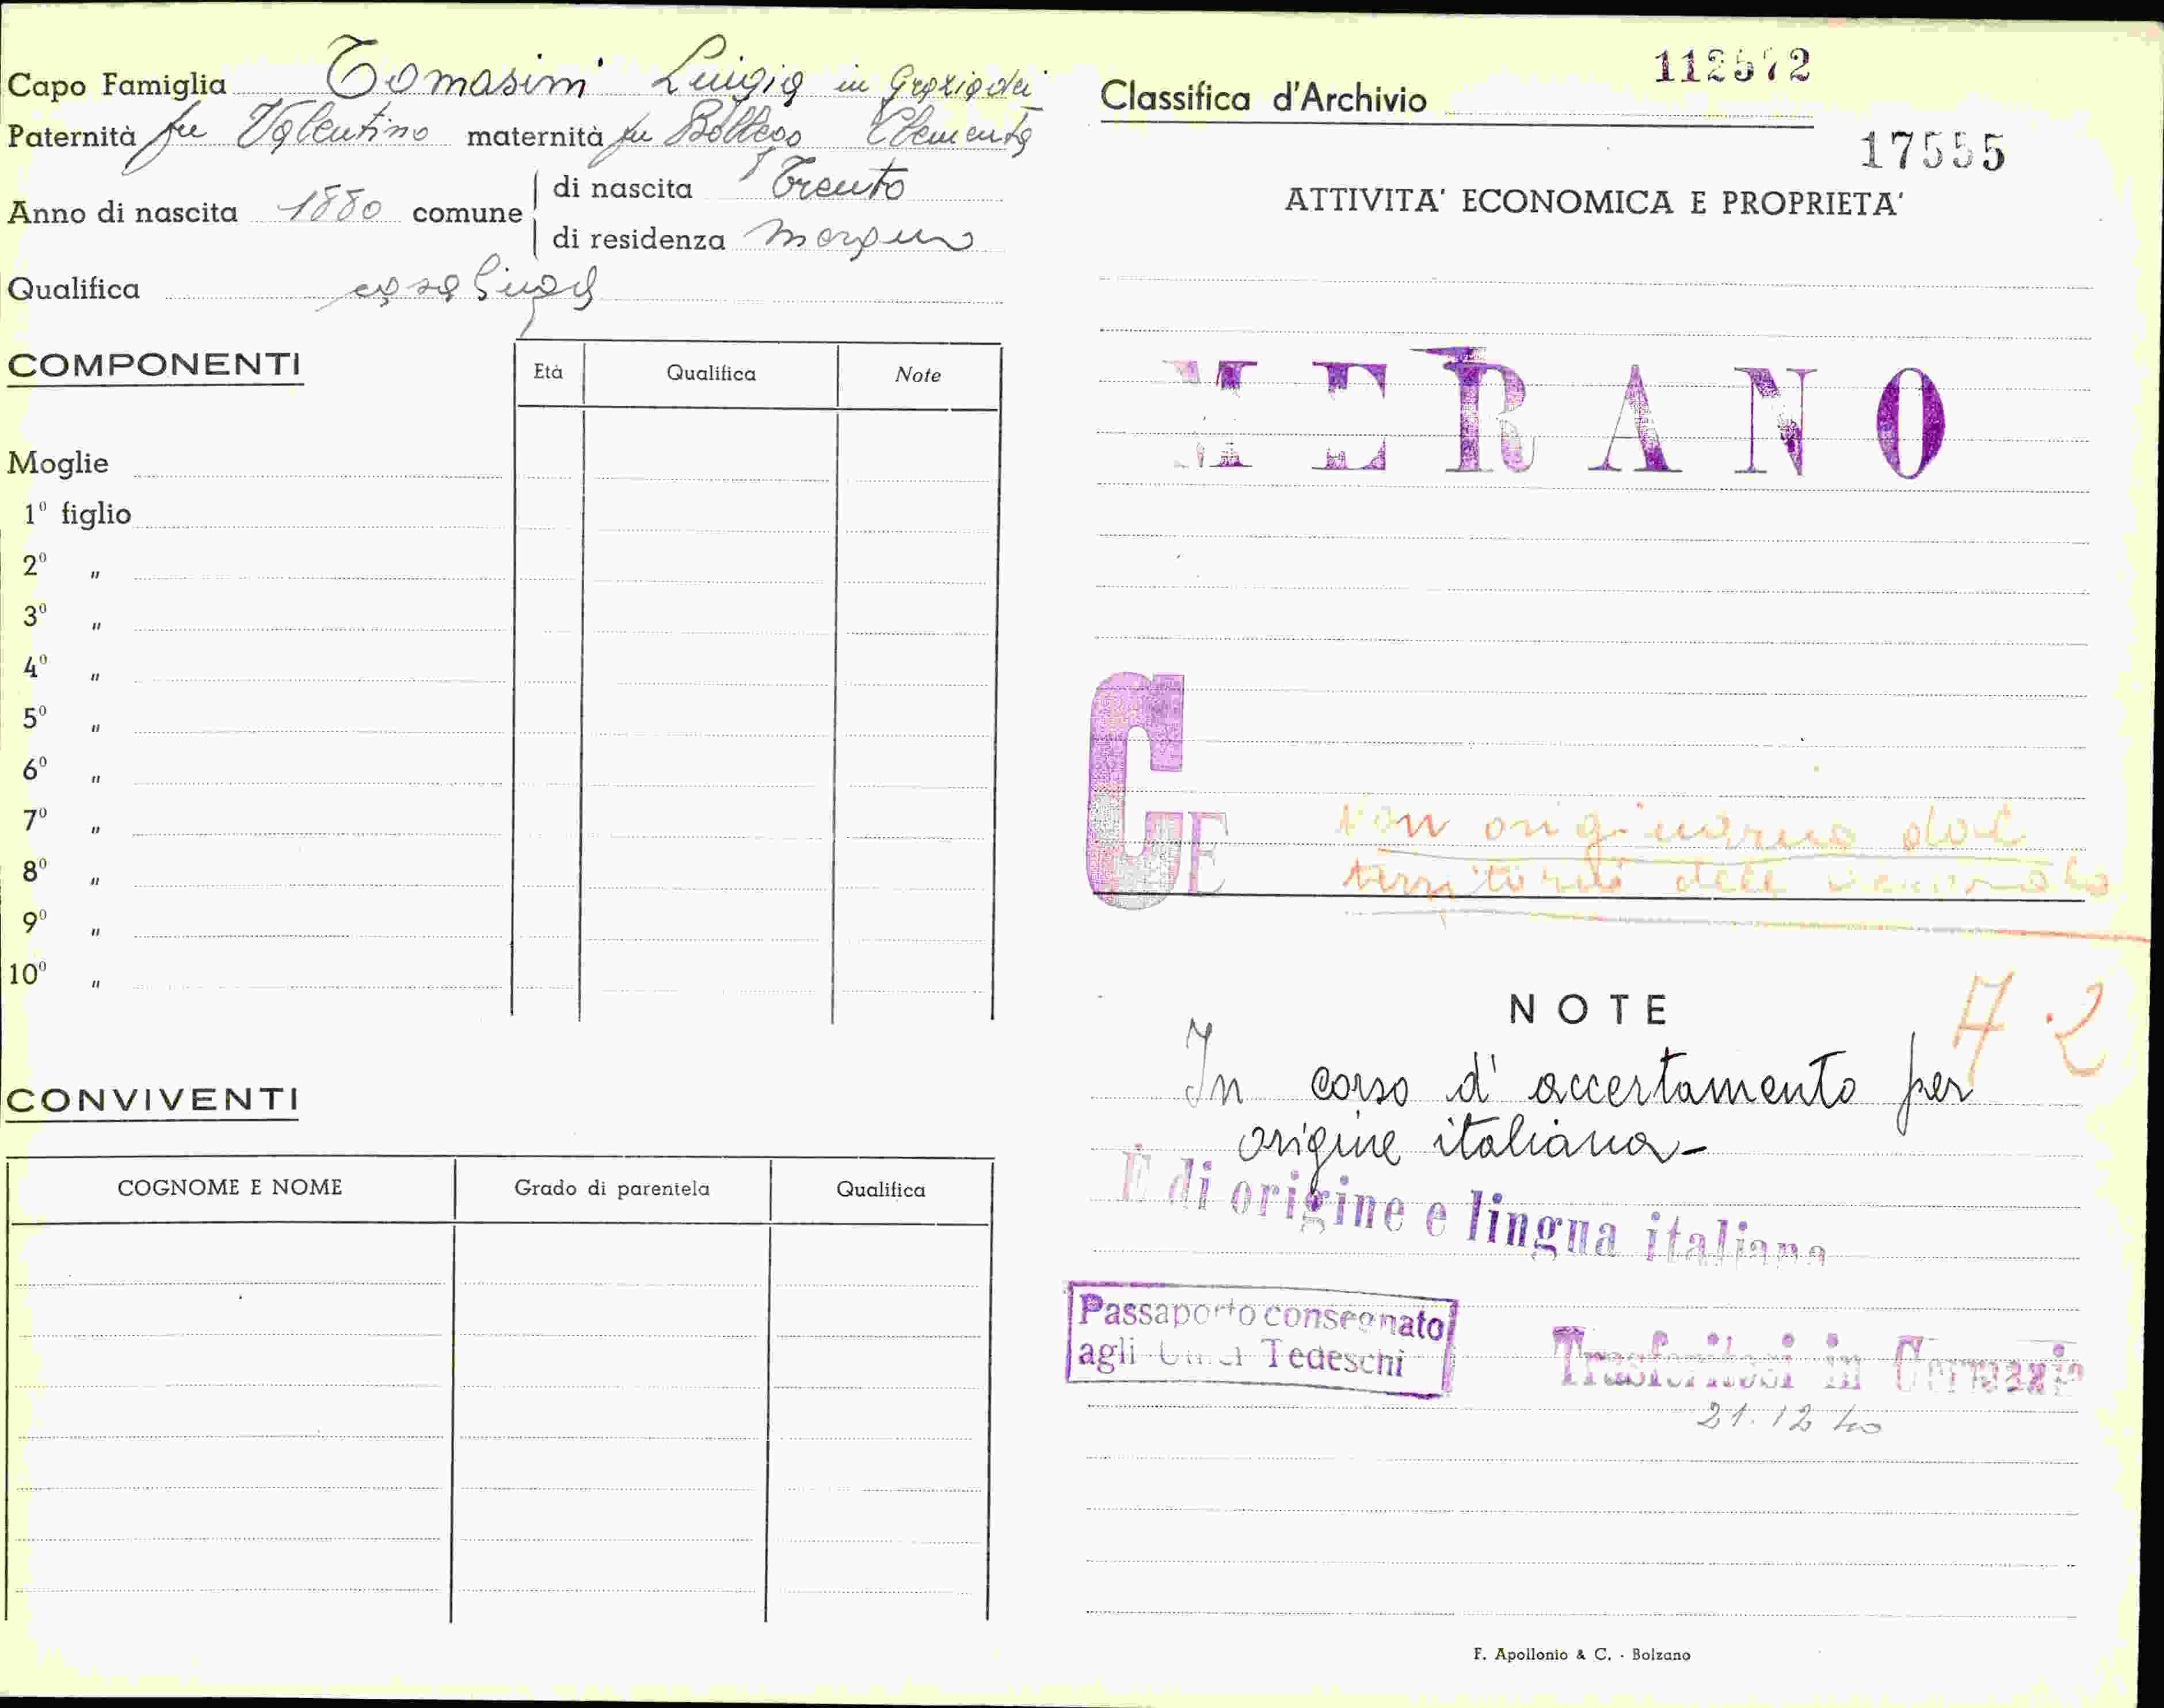 Capo Famiglia Tomasini Luigia in Graziadei
Paternità fu Valentino maternità fu Bottego Clementa
Anno di nascita 1880 comune
di nascita Trento
di residenza
Qualifica casalinga
COMPONENTI
Età Qualifica Note
Moglie
1º figlio
2º "
3º "
4º "
5º "
6º "
7º "
8º "
9º "
10º "
CONVIVENTI
COGNOME E NOME Grado di parentela Qualifica
112572
Classifica d'Archivio
17555
ATTIVITA' ECONOMICA E PROPRIETA'
MERANO
GE
Non originario del
territorio dell'
NOTE
A.2
In corso d'accertamento per
origine italiana-
È di origine e lingua italiana
Passaporto consegnato
agli Uffici Tedeschi
Trasferitosi in Germania
21.12 40
F. Apollonio & C. - Bolzano